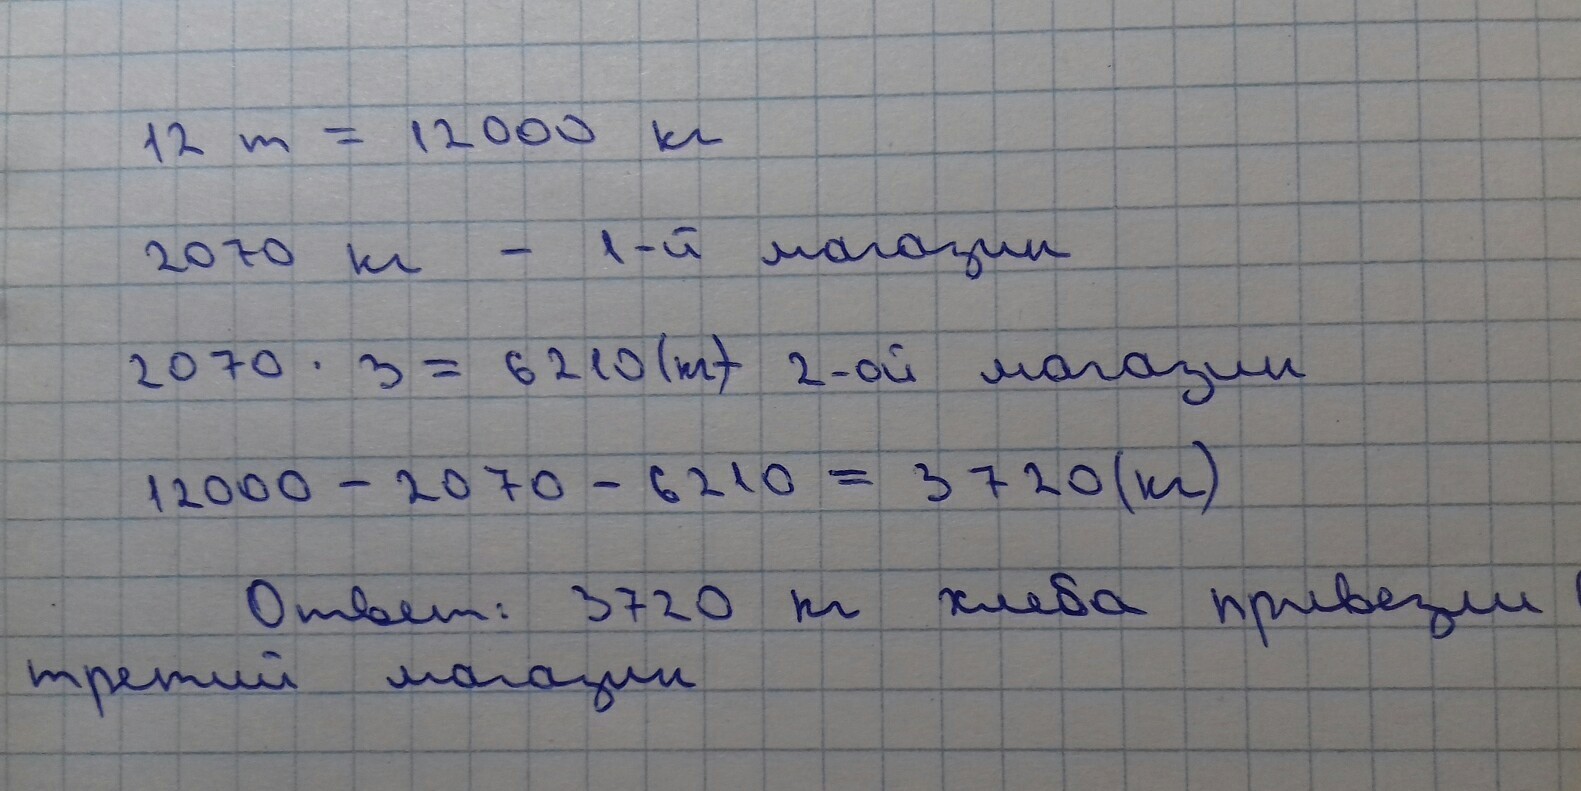 12 т = 12000 кг
2070 кг - 1-й магазин
2070 · 3 = 6210 (кг) 2-ой магазин
12000 - 2070 - 6210 = 3720 (кг)
Ответ: 3720 кг хлеба привезли
третий магазин